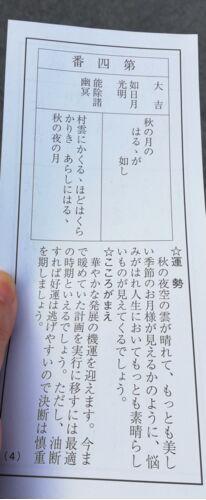 第四番
大吉
如日月
光明
能除諸
幽冥
秋の月の
はるゝが
如し
村雲にかくるゝほどはくら
かりき あらしにはるゝ
秋の夜の月
☆運勢
秋の夜空の雲が晴れて、もっとも美し
い季節のお月様が見えるかのように、悩
みがはれ人生においてもっとも素晴らし
いものが見えてくるでしょう。
☆こころがまえ
華やかな発展の機運を迎えます。今ま
で暖めていた計画を実行に移すには最適
の時期といえるでしょう。ただし、油断
すれば好運は逃げやすいので決断は慎重
を期しましょう。
(4)